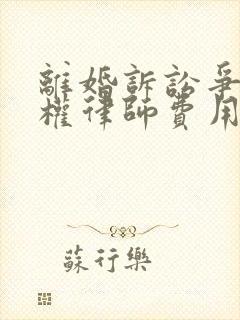 離婚訴訟爭
權律師費用
蘇行樂